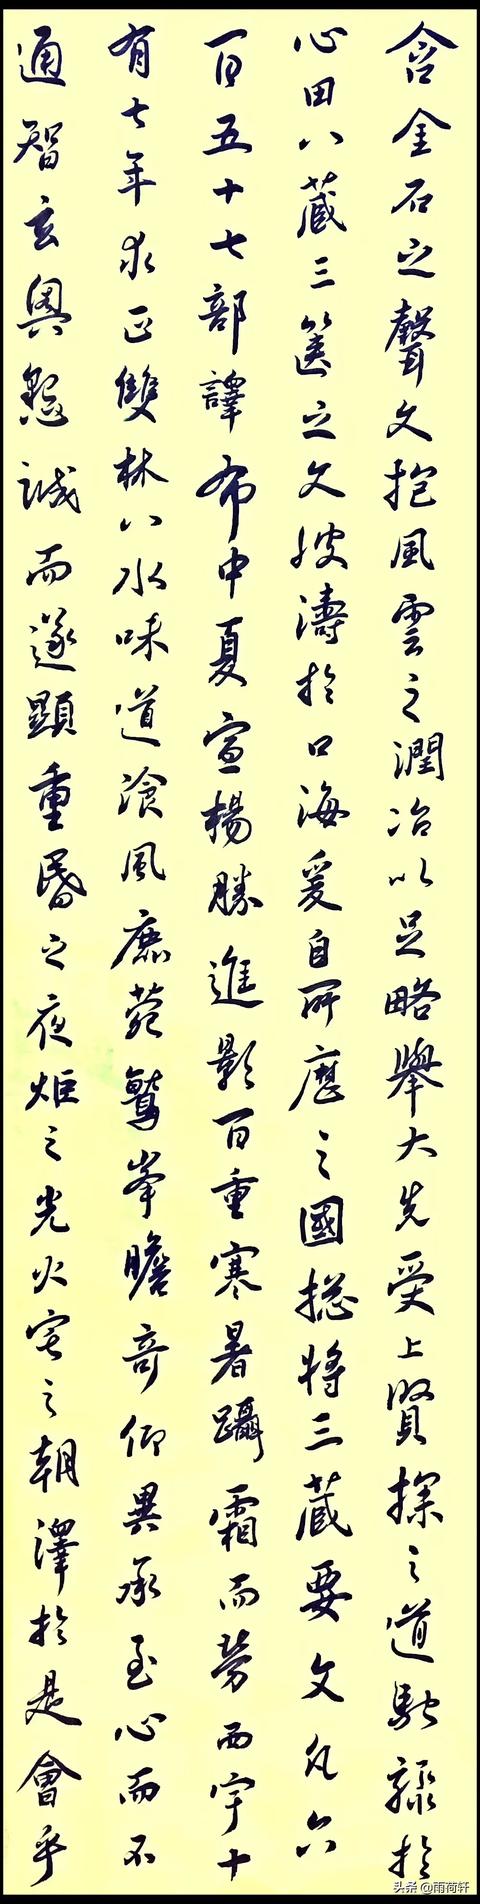 含金石之聲文抱風雲之潤治以足略舉大先受上賢探之道馳驟於
心田八藏三篋之文波濤於口海爰自所歷之國揔將三藏要文凡六
百五十七部譯布中夏宣楊勝進影百重寒暑躡霜而勞西宇十
有七年求正雙林八水味道飡風鹿菀鷲峯瞻奇仰異承至心而不
通智玄奧懇誠而遂顯重昏之夜炬之光火宅之朝澤於是會乎
头条 @雨荷轩